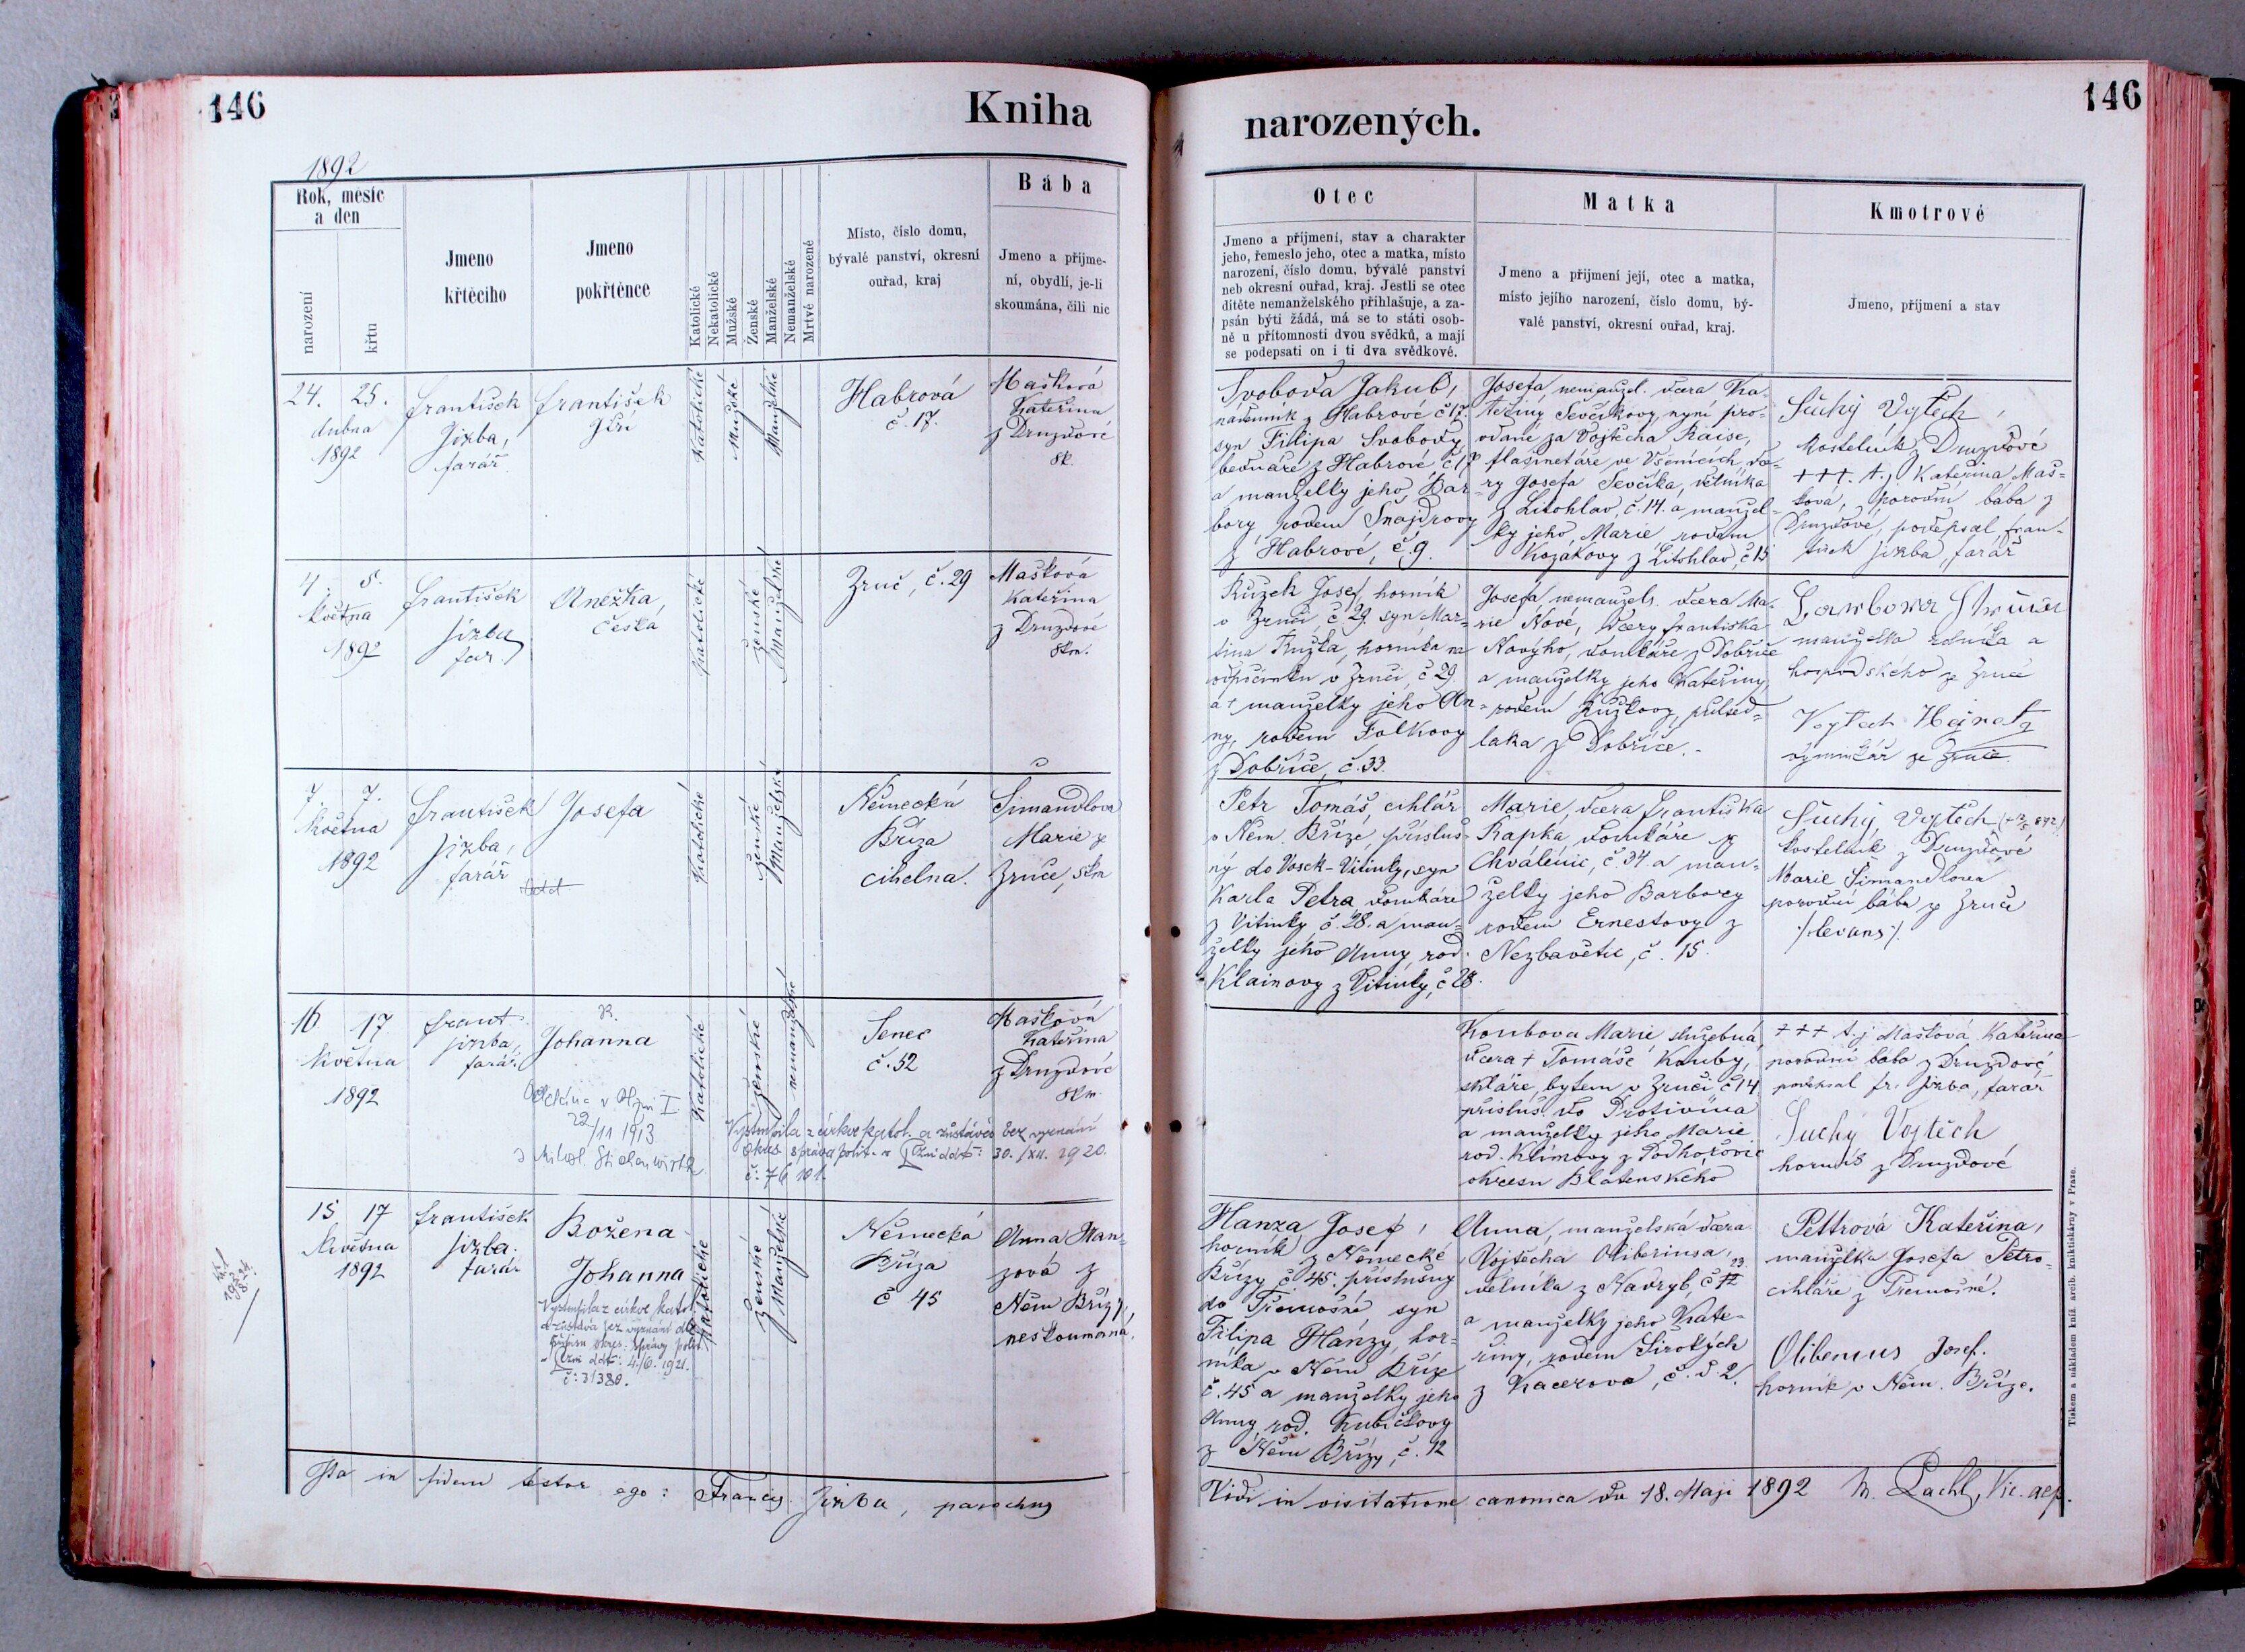 146
Kniha
1892
Rok, měsíc
a den
narození
křtu
Jmeno
křtěcího
Jmeno
pokřtěnce
Katolické
Nekatolické
Mužské
Ženské
Manželské
Nemanželské
Mrtvě narozené
Místo, číslo domu,
bývalé panství, okresní
ouřad, kraj
Bába
Jmeno a příjme-
ní, obydlí, je-li
skoumána, čili nic
24. 25.
dubna
1892
František
Jizba,
farář
František
Jiří
Katolické
Mužské
Manželské
Habrová
č. 17.
Mašková
Kateřina
z Druzdové
sk.
4. 5.
května
1892
František
Jizba
far.
Anežka,
Češka
Katolické
ženské
Manželské
Zruč, č. 29
Mašková
Kateřina
z Druzdové
skm.
7. 7.
května
1892
František
Jizba,
farář
Josefa
Katolické
ženské
Manželské
Německá
Bříza
cihelna.
Šimandlova
Marie ze
Zruče, skm
16 17
Května
1892
Frant.
Jizba,
farář.
Johanna
22/11 1913
Katolické
ženské
nemanželské
Senec
č. 32
Mašková
Kateřina
z Druzdové
skm.
Vystoupila z církve katol. a zůstává bez vyznání
30./XII. 1920.
15 17
Května
1892
František
Jizba
farář
Božena
Johanna
Vystoupila z církve katol.
a zůstává bez vyznání
4./6. 1921.
Katolické
ženské
Manželské
Německá
Bříza
č 45
Anna Han-
zová z
Něm Břízy,
neskoumaná.
Ita in fidem testor ego: Francis. Jizba, parochus
146
narozených.
Otec
Jmeno a příjmení, stav a charakter
jeho, řemeslo jeho, otec a matka, místo
narození, číslo domu, bývalé panství
neb okresní ouřad, kraj. Jestli se otec
dítěte nemanželského přihlašuje, a za-
psán býti žádá, má se to státi osob-
ně u přítomnosti dvou svědků, a mají
se podepsati on i ti dva svědkové.
Matka
Jmeno a příjmení její, otec a matka,
místo jejího narození, číslo domu, bý-
valé panství, okresní ouřad, kraj.
Kmotrové
Jmeno, příjmení a stav
Svoboda Jakub,
z Habrové č 17.
syn Filipa Svobody
bednáře z Habrové č 17
a manželky jeho Bar-
bory rodem Šnajdrovy
z Habrové, č. 9.
Josefa, nemanžel. dcera Ka-
teřiny Ševčíkovy, nyní pro-
vdané za Vojtěcha Raise,
flašinetáře ve Všenicích, dce-
ry Josefa Ševčíka, dělníka
z Litohlav, č. 14. a manžel-
ky jeho, Marie rodem
Kozákovy z Litohlav, č 15
Suchý Vojtěch,
kostelník z Druzdové
+++. t. j. Kateřina Maš-
ková, porodní bába z
Druzdové, podepsal Fran-
tišek Jizba, farář
Růžek Josef, horník
v Zruči, č 29. syn Mar-
tina Růžka, horníka na
odpočinku v Zruči, č 29.
a † manželky jeho An-
ny, rodem Folkovy
z Dobříče, č. 33.
Josefa, nemanžels. dcera Ma-
rie Nové, dcery Františka
Nového, domkáře z Dobříče
a manželky jeho Kateřiny,
rodem Růžkovy, půlsed-
láka z Dobříče.
manželka rolníka a
hospodského ze Zruče
Vojtěch Hejnatz
výminkář ze Zruče.
Petr Tomáš, cihlář
v Něm. Bříze, přísluš-
ný do Vosek-Vitinky, syn
Karla Petra domkáře
z Vitinky č. 28. a man-
želky jeho Anny, rod.
Klainovy z Vitinky, č 28.
Marie, dcera Františka
Kapka, domkáře z
Chválenic, č 34 a man-
želky jeho Barbory
rodem Ernestovy z
Nezbavětic, č. 15.
Suchý Vojtěch
kostelník z Druzdové
Marie Šimandlova
porodní bába ze Zruče
/:levans:/.
Koubova Marie, služebná,
dcera † Tomáše Kouby,
skláře, bytem v Zruči č 14
přísluš. do Protivína
a manželky jeho Marie
rod. Klímovy z Podhořovic
okresu Blatenského
+++ t. j. Mašková Kateřina
porodní bába z Druzdové
podepsal Fr. Jizba, farář
Suchý Vojtěch
horník z Druzdové
Hanza Josef,
horník z Německé
Břízy č 45. příslušný
do Třemošné syn
Filipa Hanzy, hor-
níka v Něm Bříze
č. 45 a manželky jeho
Anny rod. Kubíčkovy
z Něm Břízy, č. 12
Anna, manželská dcera
Vojtěcha Oliberiusa,
dělníka z Nadryb, č 23
a manželky jeho Kate-
řiny, rodem Širokých
z Kacerova, č. d. 2.
Pettrová Kateřina,
manželka Josefa Petro-
cihláře z Třemošné.
Oliberius Josef.
horník v Něm. Bříze.
Vidi in visitatione canonica die 18. Maji 1892 M. Lachl, Vic. aep.
Tiskem a nákladem kníž. arcib. knihtiskárny v Praze.